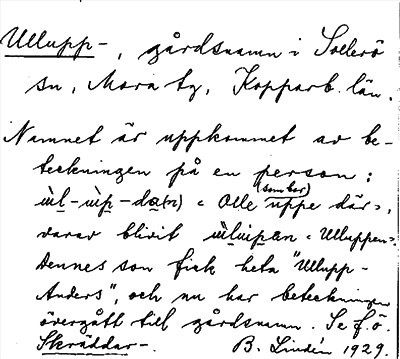 Ullupp-, gårdsnamn i Sollerö
sn, Mora tg, Kopparb. län.
Namnet är uppkommet av be-
teckningen på en person:
ùl-ùp-da(n) = Olle (som bor) uppe där,
varav blivit ùlùpan = Ulluppen.
Dennes son fick heta "Ullupp-
Anders", och nu har beteckningen
övergått till gårdsnamn. Se f. ö.
Skräddar-. B. Lindén 1929.